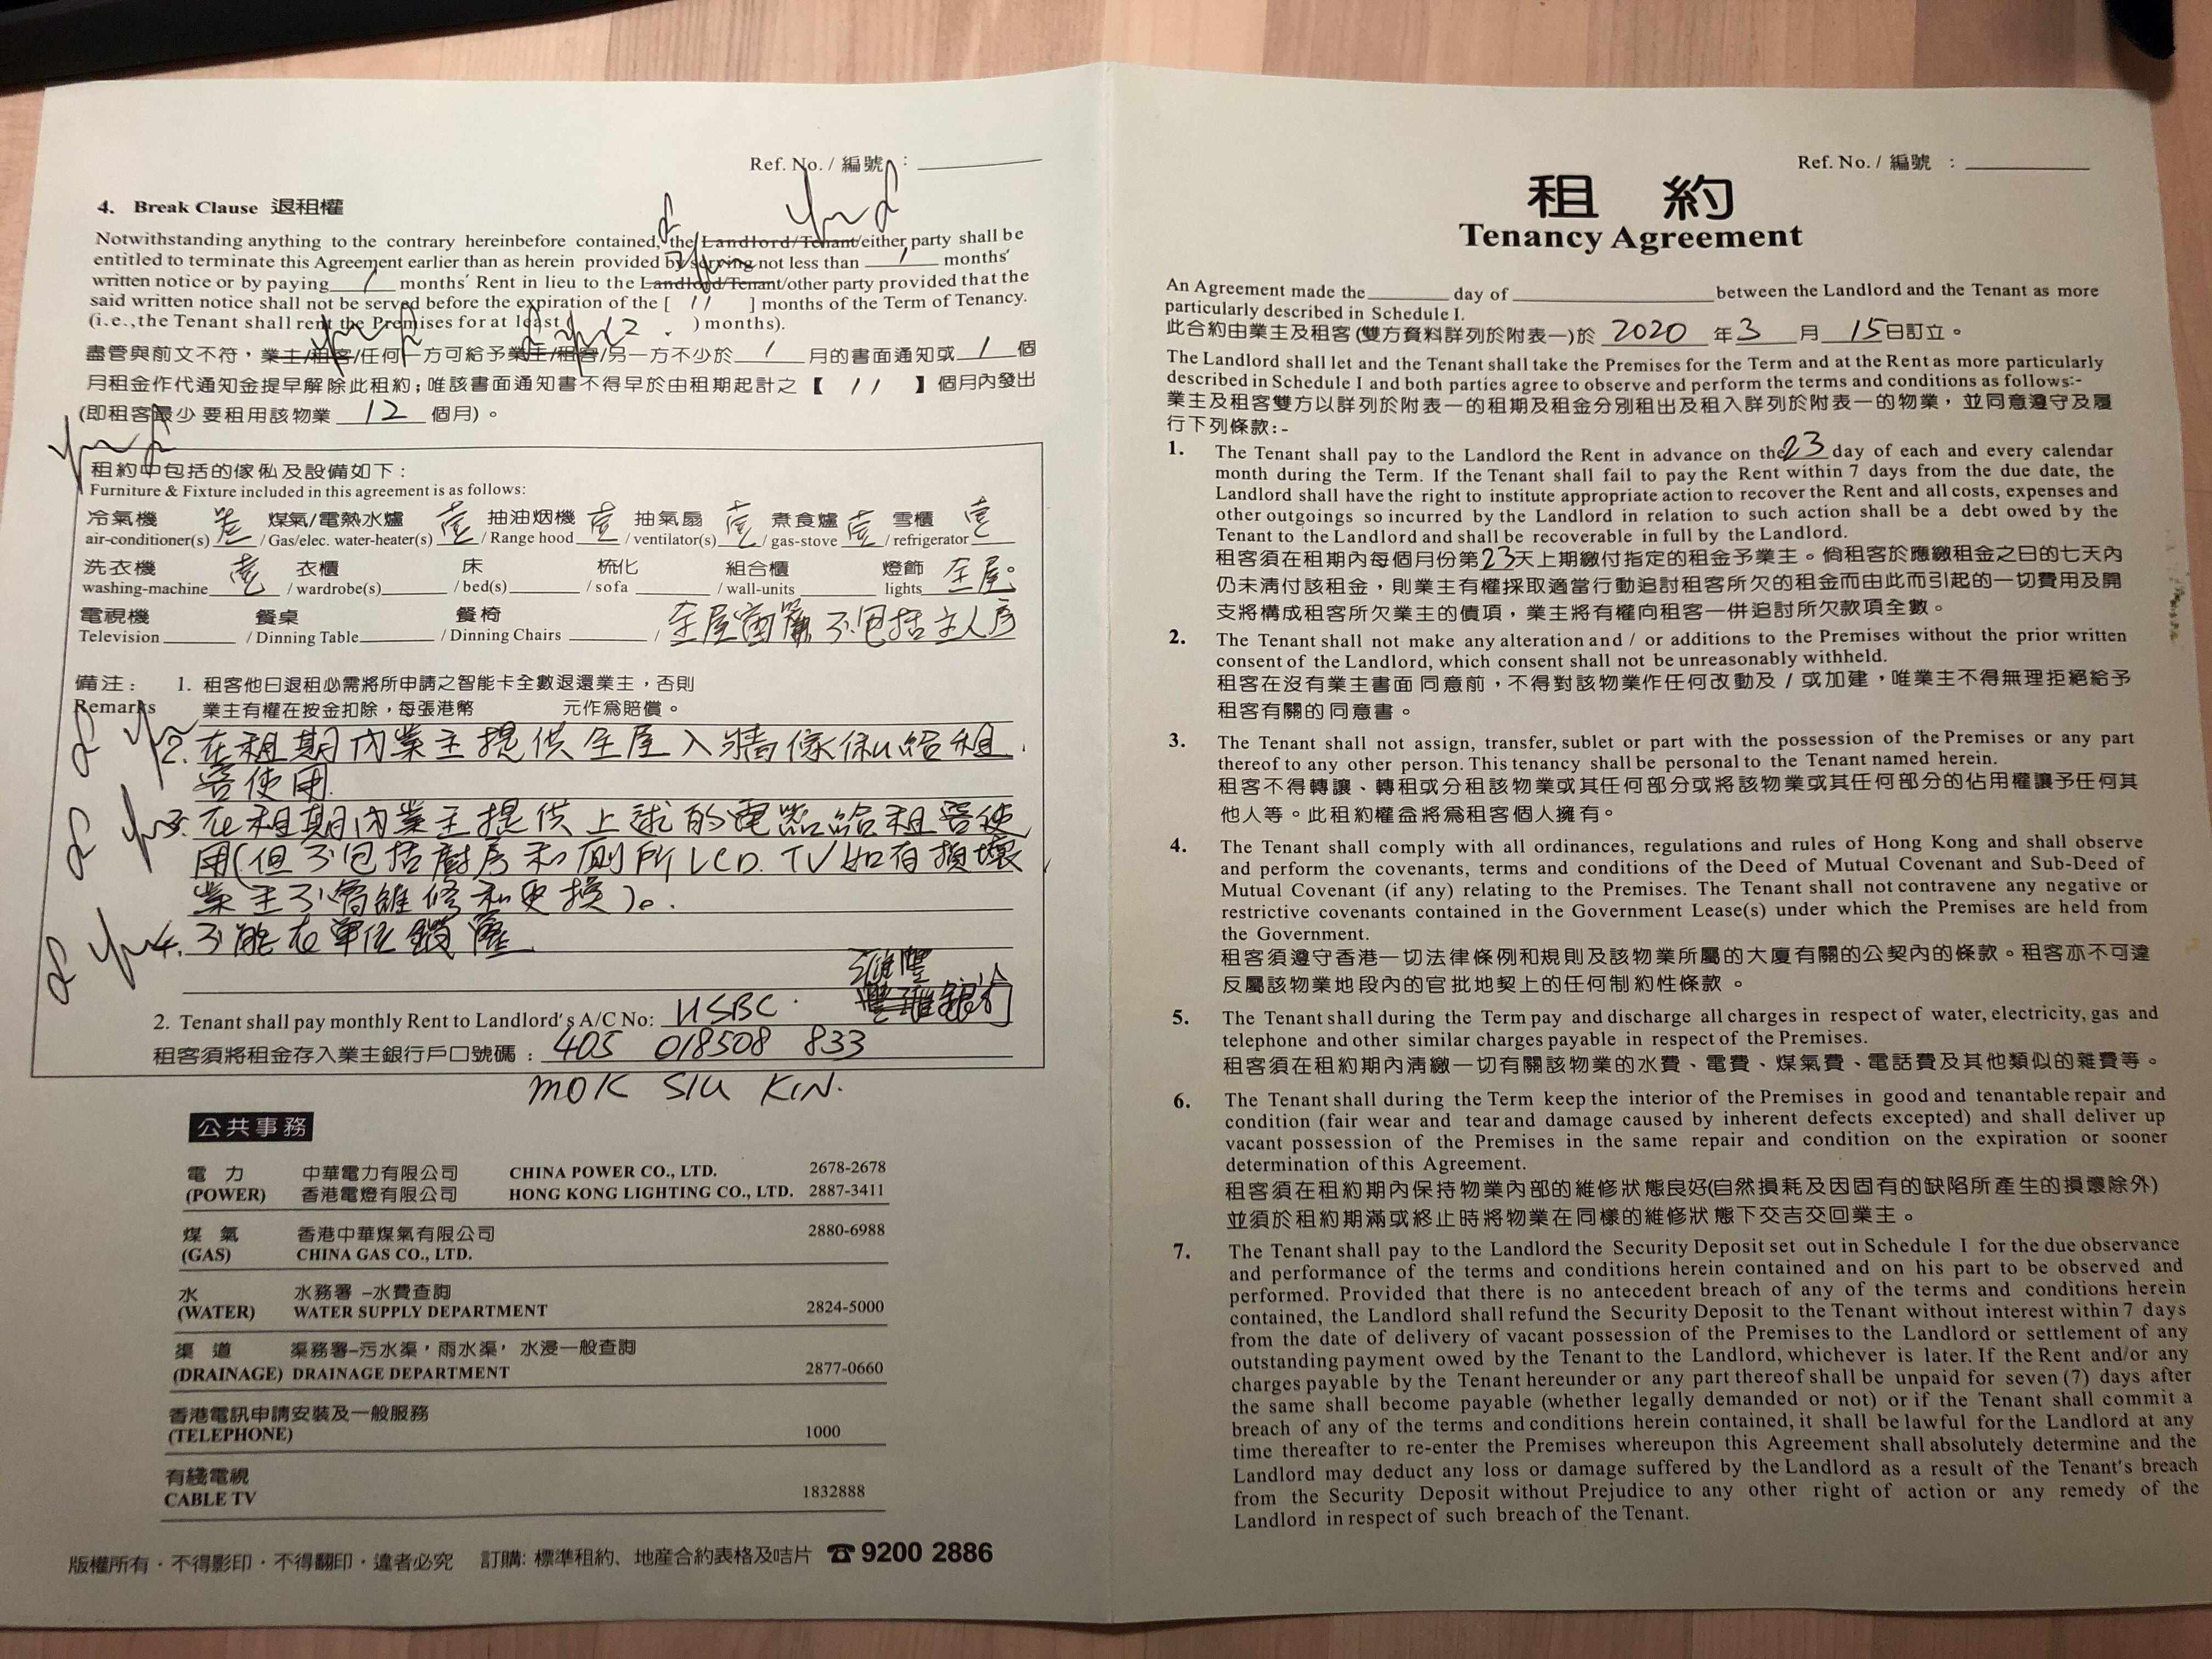 Ref. No. / 編號 :
4. Break Clause 退租權
Notwithstanding anything to the contrary hereinbefore contained, the Landlord/Tenant/either party shall be
entitled to terminate this Agreement earlier than as herein provided by serving not less than 1 months'
written notice or by paying 1 months' Rent in lieu to the Landlord/Tenant/other party provided that the
said written notice shall not be served before the expiration of the [ 11 ] months of the Term of Tenancy.
(i.e., the Tenant shall rent the Premises for at least ( 12 ) months).
盡管與前文不符，業主/租客/任何一方可給予業主/租客/另一方不少於 1 月的書面通知或 1 個
月租金作代通知金提早解除此租約；唯該書面通知書不得早於由租期起計之【 11 】個月內發出
(即租客最少要租用該物業 12 個月)。
租約中包括的傢俬及設備如下：
Furniture & Fixture included in this agreement is as follows:
冷氣機 煤氣/電熱水爐 壹 抽油烟機 壹 抽氣扇 壹 煮食爐 壹 雪櫃 壹
air-conditioner(s) / Gas/elec. water-heater(s) / Range hood / ventilator(s) / gas-stove / refrigerator
洗衣機 壹 衣櫃 床 梳化 組合櫃 燈飾 全屋
washing-machine / wardrobe(s) / bed(s) / sofa / wall-units lights
電視機 餐桌 餐椅
Television / Dinning Table / Dinning Chairs / 全屋窗簾 不包括主人房
備注： 1. 租客他日退租必需將所申請之智能卡全數退還業主，否則
Remarks 業主有權在按金扣除，每張港幣 元作為賠償。
2. 在租期內業主提供全屋入牆傢俬給租
客使用
3. 在租期內業主提供上述的電器給租客使
用(但不包括廚房和厠所LCD. TV如有損壞
業主不會維修和更換)。
4. 不能在單位
滙豐
2. Tenant shall pay monthly Rent to Landlord's A/C No: HSBC 銀行
租客須將租金存入業主銀行戶口號碼： 405 018508 833
MOK SIU KIN.
公共事務
電 力 中華電力有限公司 CHINA POWER CO., LTD. 2678-2678
(POWER) 香港電燈有限公司 HONG KONG LIGHTING CO., LTD. 2887-3411
煤 氣 香港中華煤氣有限公司 2880-6988
(GAS) CHINA GAS CO., LTD.
水 水務署 –水費查詢
(WATER) WATER SUPPLY DEPARTMENT 2824-5000
渠 道 渠務署–污水渠，雨水渠，水浸一般查詢
(DRAINAGE) DRAINAGE DEPARTMENT 2877-0660
香港電訊申請安裝及一般服務
(TELEPHONE) 1000
有綫電視
CABLE TV 1832888
版權所有 · 不得影印 · 不得翻印 · 違者必究 訂購: 標準租約、地產合約表格及咭片 ☎ 9200 2886
Ref. No. / 編號 :
租 約
Tenancy Agreement
An Agreement made the day of between the Landlord and the Tenant as more
particularly described in Schedule I.
此合約由業主及租客(雙方資料詳列於附表一)於 2020 年 3 月 15 日訂立。
The Landlord shall let and the Tenant shall take the Premises for the Term and at the Rent as more particularly
described in Schedule I and both parties agree to observe and perform the terms and conditions as follows:-
業主及租客雙方以詳列於附表一的租期及租金分別租出及租入詳列於附表一的物業，並同意遵守及履
行下列條款：-
1. The Tenant shall pay to the Landlord the Rent in advance on the 23 day of each and every calendar
month during the Term. If the Tenant shall fail to pay the Rent within 7 days from the due date, the
Landlord shall have the right to institute appropriate action to recover the Rent and all costs, expenses and
other outgoings so incurred by the Landlord in relation to such action shall be a debt owed by the
Tenant to the Landlord and shall be recoverable in full by the Landlord.
租客須在租期內每個月份第23天上期繳付指定的租金予業主。倘租客於應繳租金之日的七天內
仍未清付該租金，則業主有權採取適當行動追討租客所欠的租金而由此而引起的一切費用及開
支將構成租客所欠業主的債項，業主將有權向租客一併追討所欠款項全數。
2. The Tenant shall not make any alteration and / or additions to the Premises without the prior written
consent of the Landlord, which consent shall not be unreasonably withheld.
租客在沒有業主書面同意前，不得對該物業作任何改動及 / 或加建，唯業主不得無理拒絕給予
租客有關的同意書。
3. The Tenant shall not assign, transfer, sublet or part with the possession of the Premises or any part
thereof to any other person. This tenancy shall be personal to the Tenant named herein.
租客不得轉讓、轉租或分租該物業或其任何部分或將該物業或其任何部分的佔用權讓予任何其
他人等。此租約權益將為租客個人擁有。
4. The Tenant shall comply with all ordinances, regulations and rules of Hong Kong and shall observe
and perform the covenants, terms and conditions of the Deed of Mutual Covenant and Sub-Deed of
Mutual Covenant (if any) relating to the Premises. The Tenant shall not contravene any negative or
restrictive covenants contained in the Government Lease(s) under which the Premises are held from
the Government.
租客須遵守香港一切法律條例和規則及該物業所屬的大廈有關的公契內的條款。租客亦不可違
反屬該物業地段內的官批地契上的任何制約性條款。
5. The Tenant shall during the Term pay and discharge all charges in respect of water, electricity, gas and
telephone and other similar charges payable in respect of the Premises.
租客須在租約期內清繳一切有關該物業的水費、電費、煤氣費、電話費及其他類似的雜費等。
6. The Tenant shall during the Term keep the interior of the Premises in good and tenantable repair and
condition (fair wear and tear and damage caused by inherent defects excepted) and shall deliver up
vacant possession of the Premises in the same repair and condition on the expiration or sooner
determination of this Agreement.
租客須在租約期內保持物業內部的維修狀態良好(自然損耗及因固有的缺陷所產生的損壞除外)
並須於租約期滿或終止時將物業在同樣的維修狀態下交吉交回業主。
7. The Tenant shall pay to the Landlord the Security Deposit set out in Schedule I for the due observance
and performance of the terms and conditions herein contained and on his part to be observed and
performed. Provided that there is no antecedent breach of any of the terms and conditions herein
contained, the Landlord shall refund the Security Deposit to the Tenant without interest within 7 days
from the date of delivery of vacant possession of the Premises to the Landlord or settlement of any
outstanding payment owed by the Tenant to the Landlord, whichever is later. If the Rent and/or any
charges payable by the Tenant hereunder or any part thereof shall be unpaid for seven (7) days after
the same shall become payable (whether legally demanded or not) or if the Tenant shall commit a
breach of any of the terms and conditions herein contained, it shall be lawful for the Landlord at any
time thereafter to re-enter the Premises whereupon this Agreement shall absolutely determine and the
Landlord may deduct any loss or damage suffered by the Landlord as a result of the Tenant's breach
from the Security Deposit without Prejudice to any other right of action or any remedy of the
Landlord in respect of such breach of the Tenant.